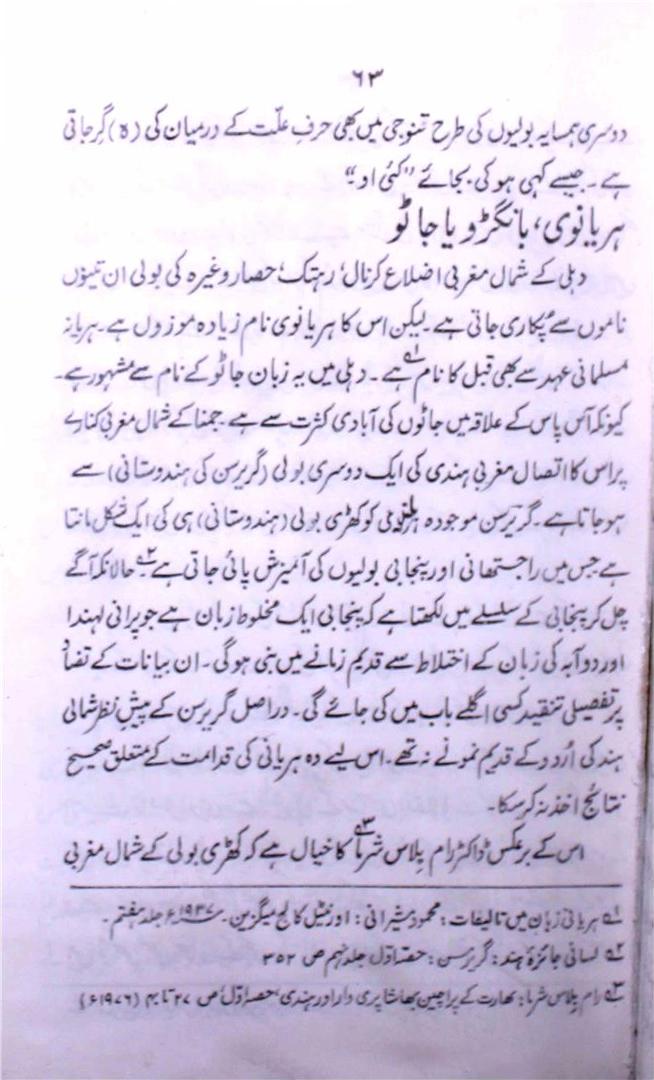 ۶۳
دوسری ہمسایہ بولیوں کی طرح قنوجی میں بھی حرفِ علّت کے درمیان کی (ہ) گر جاتی
ہے۔ جیسے کہی ہو کی بجائے "کئی او"
ہریانوی، بانگڑو یا جاٹو
دہلی کے شمال مغربی اضلاع کرنال، رہتک، حصار وغیرہ کی بولی ان تینوں
ناموں سے پکاری جاتی ہے۔ لیکن اس کا ہریانوی نام زیادہ موزوں ہے۔ ہریانہ
مسلمانی عہد سے بھی قبل کا نام ہے۱۔ دہلی میں یہ زبان جاٹو کے نام سے مشہور ہے۔
کیونکہ آس پاس کے علاقہ میں جاٹوں کی آبادی کثرت سے ہے۔ جمنا کے شمال مغربی کنارے
پر اس کا اتصال مغربی ہندی کی ایک دوسری بولی (گریرسن کی ہندوستانی) سے
ہو جاتا ہے۔ گریرسن موجودہ کو کھڑی بولی (ہندوستانی) ہی کی ایک شکل مانتا
ہے جس میں راجستھانی اور پنجابی بولیوں کی آمیزش پائی جاتی ہے۲۔ حالانکہ آگے
چل کر پنجابی کے سلسلے میں لکھتا ہے کہ پنجابی ایک مخلوط زبان ہے جو پرانی لہندا
اور دوآبہ کی زبان کے اختلاط سے قدیم زمانے میں بنی ہوگی۔ ان بیانات کے تضاد
پر تفصیلی تنقید کسی اگلے باب میں کی جائے گی۔ دراصل گریرسن کے پیشِ نظر شمالی
ہند کی اُردو کے قدیم نمونے نہ تھے۔ اس لیے وہ ہریانی کی قدامت کے متعلق صحیح
نتائج اخذ نہ کر سکا۔
اس کے برعکس ڈاکٹر رام بلاس شرما۳ کا خیال ہے کہ کھڑی بولی کے شمال مغربی
۱ ہریانی زبان میں تالیفات: محمود شیرانی: اورنٹیل کالج میگزین۔ ۱۹۳۷ء جلد ہفتم۔
۲ لسانی جائزۂ ہند: گریرسن: حصہ اوّل جلد نہم ص ۲۵۲
۳ رام بلاس شرما: بھارت کے پراچین بھاشا پریوار اور ہندی، حصہ اوّل، ص ۲۷ تا ۴۰ (۱۹۷۶ء)